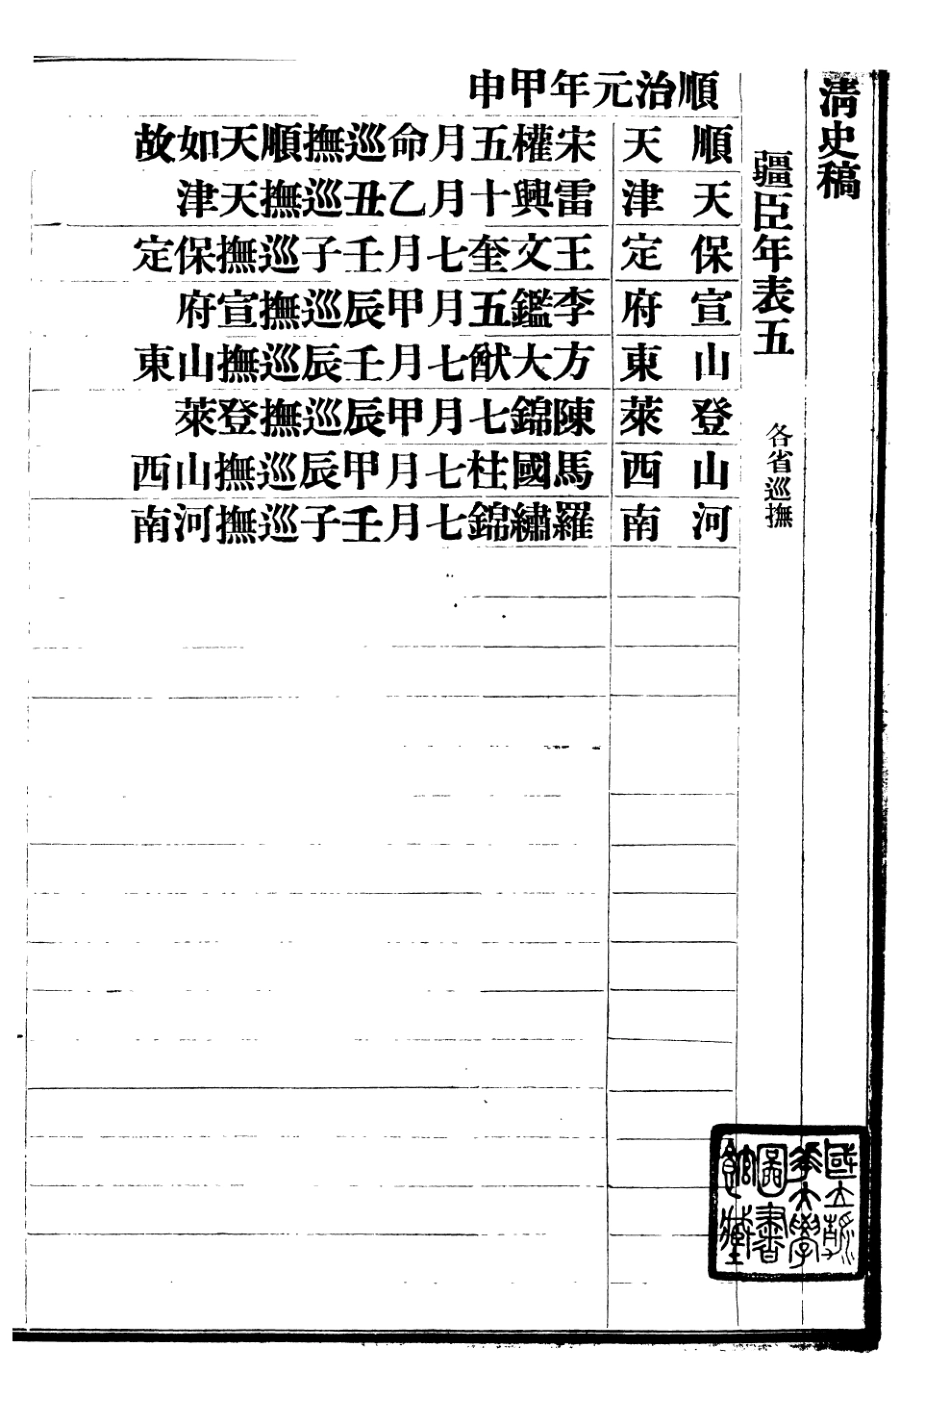 清史稿
疆臣年表五 各省巡撫
順治元年甲申
順天 宋權五月命巡撫順天如故
天津 雷興十月乙丑巡撫天津
保定 王文奎七月壬子巡撫保定
宣府 李鑑五月甲辰巡撫宣府
山東 方大猷七月壬辰巡撫山東
登萊 陳錦七月甲辰巡撫登萊
山西 馬國柱七月甲辰巡撫山西
河南 羅繡錦七月壬子巡撫河南
國立清華大學圖書館藏